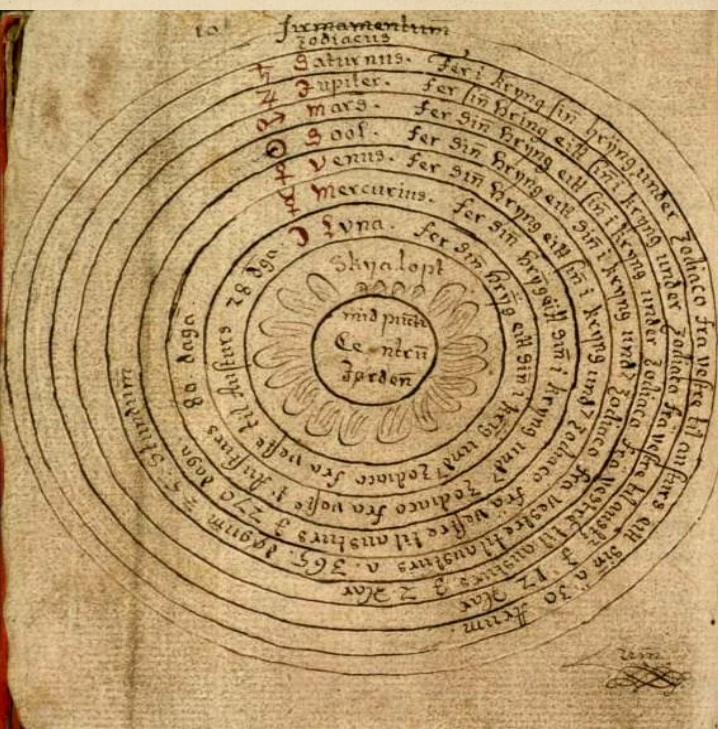 firmamentum
Zodiacus
♄ Saturnus. Fer i kryng sin hryng under Zodiaco fra vestre til austurs eitt sin a 30 Arum.
♃ Jupiter. fer sin hring eitt sin i kryng under Zodiaco fra vestre til austurs 12 Aar
♂ Mars. fer sin hryng eitt sin i kryng under Zodiaco fra vestre til austurs 2 Aar
☉ Sool. fer sin hryng eitt sin i kryng und Zodiaco fra vestre til austurs a. 365. dögum 5. Stundum
♀ Venus. fer sin hryng eitt sin i kryng und Zodiaco fra vestre til austurs 270 daga.
☿ Mercurius. fer sin hryg eitt sin i kryng und Zodiaco fra austurs 80 daga.
☽ Lvna. fer sin hryg eitt sin i krig und Zodiaco fra til austurs 28 dga.
Skyalopt
mid
Centru
Jorden